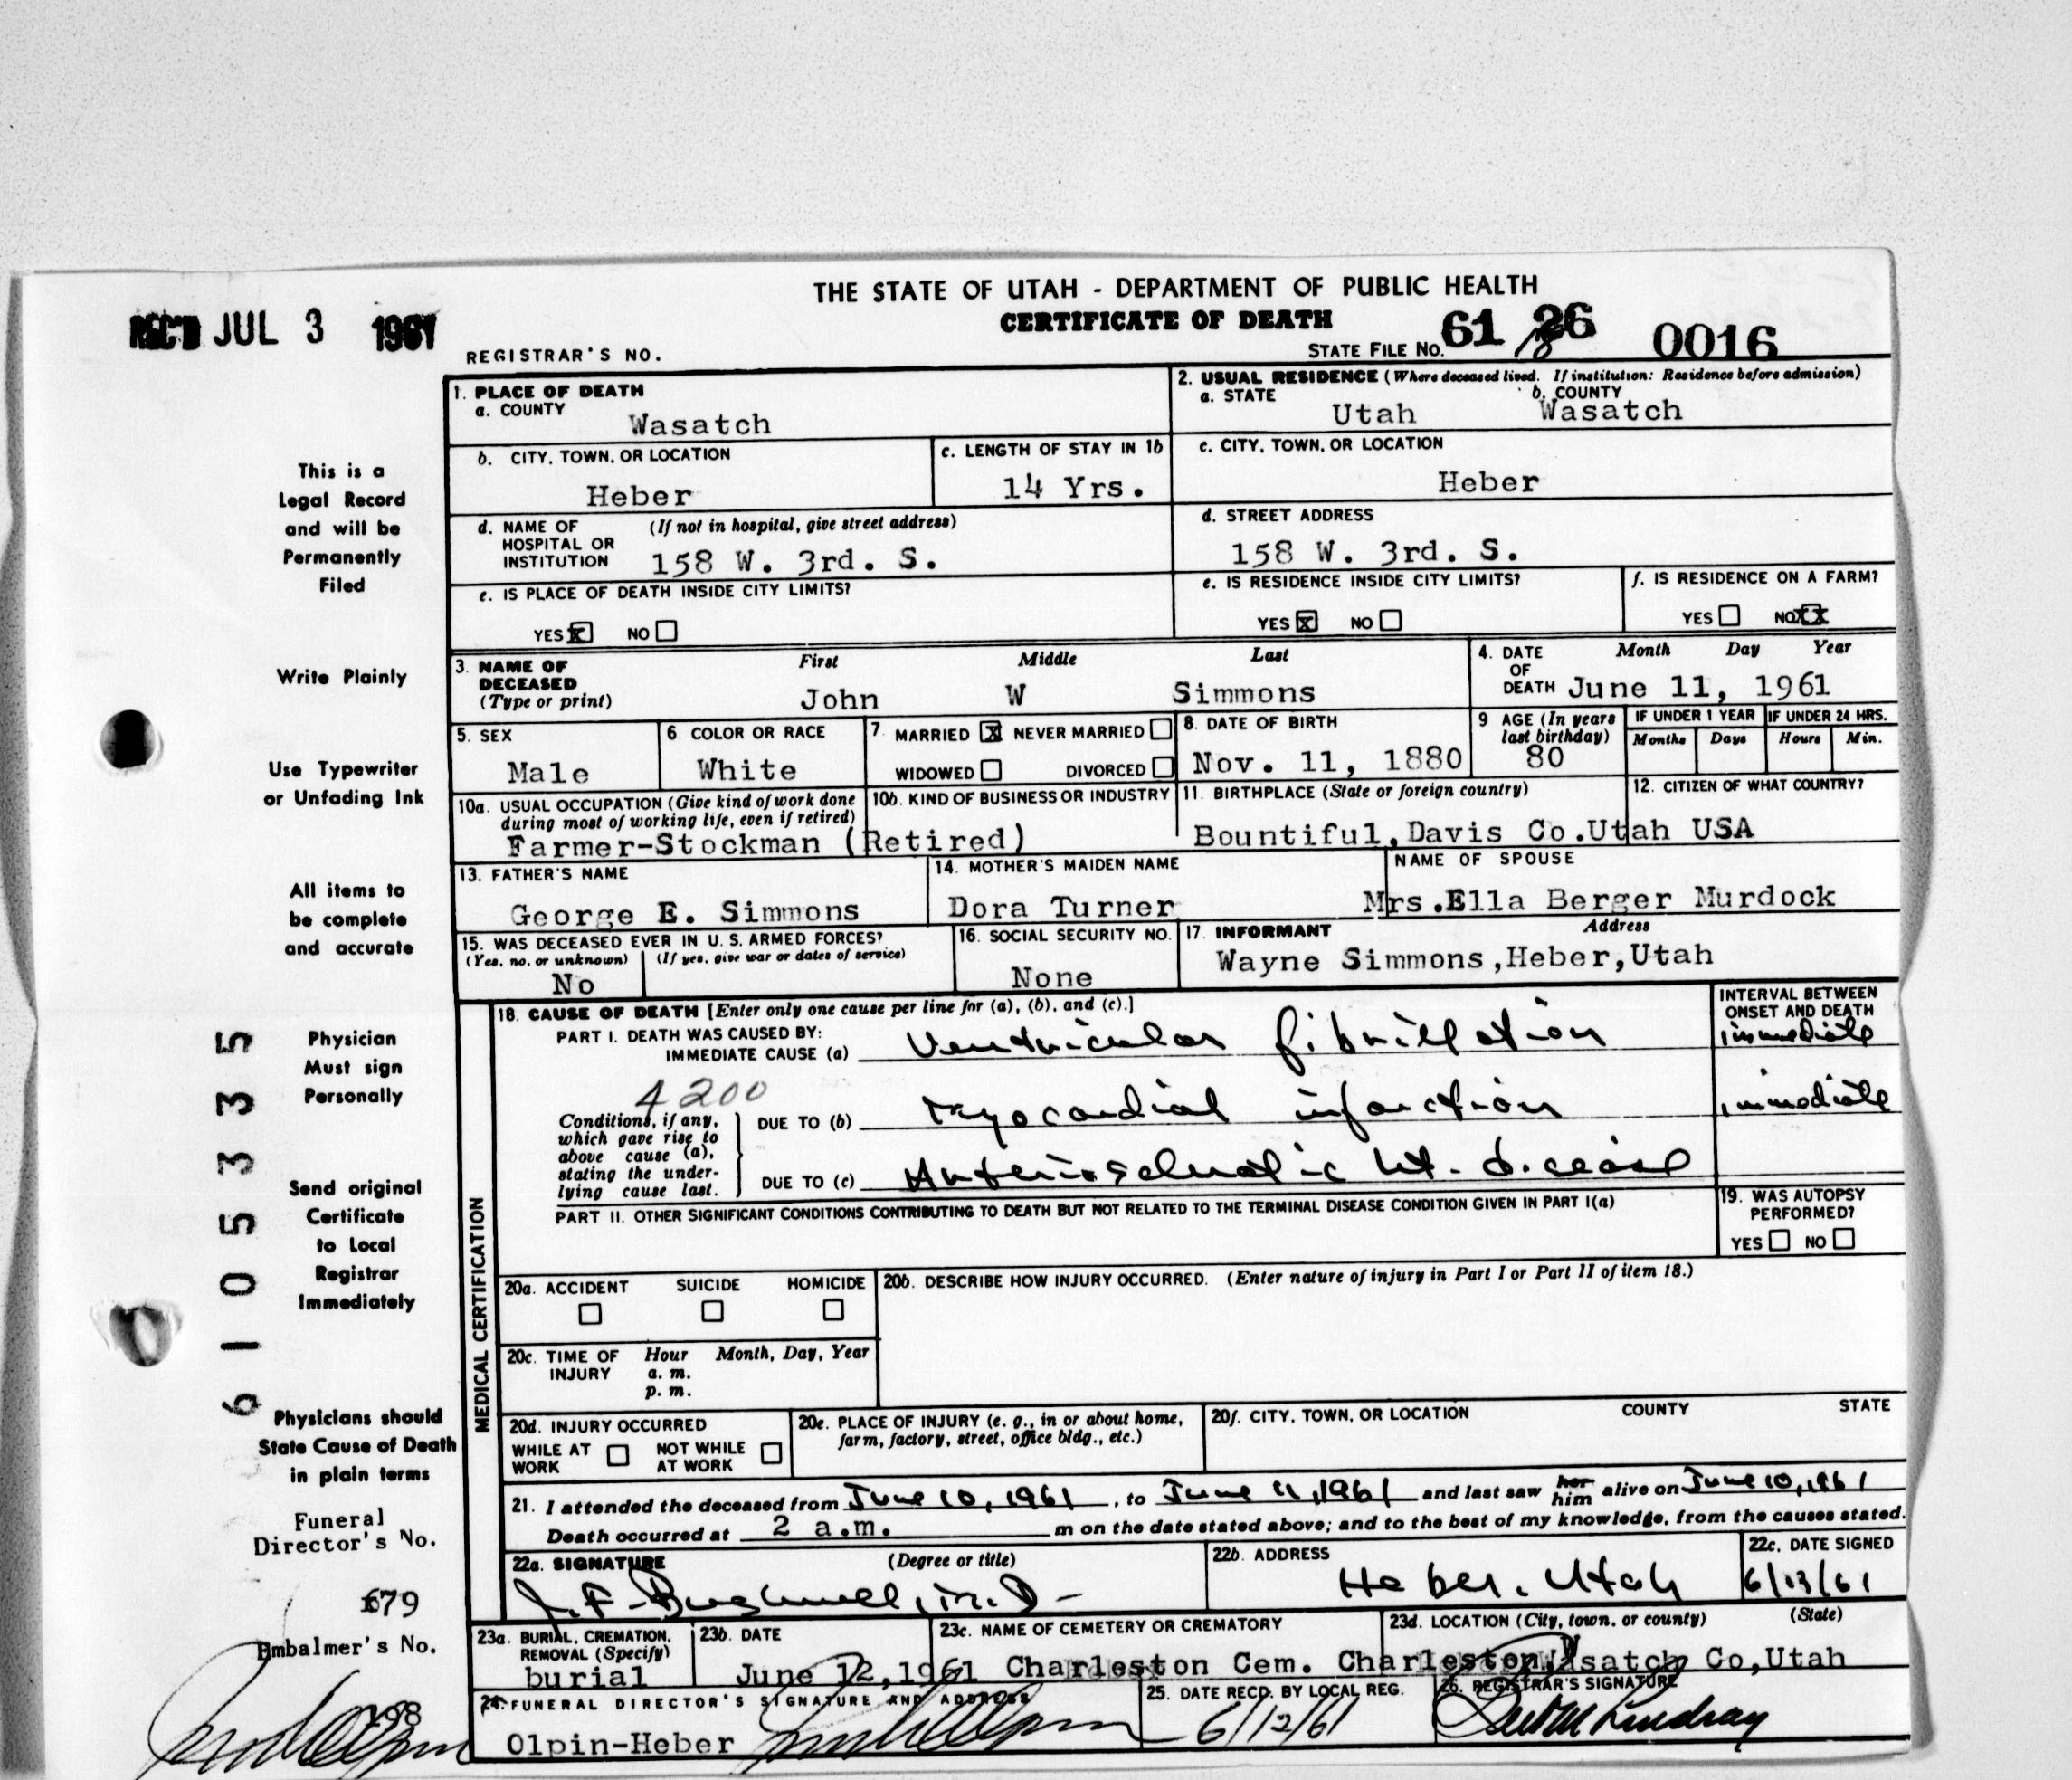 THE STATE OF UTAH - DEPARTMENT OF PUBLIC HEALTH
CERTIFICATE OF DEATH
REC'D JUL 3 1961
REGISTRAR'S NO.
STATE FILE No. 61 26 0016
18
1. PLACE OF DEATH
a. COUNTY
Wasatch
2. USUAL RESIDENCE (Where deceased lived. If institution: Residence before admission)
a. STATE
Utah
b. COUNTY
Wasatch
b. CITY, TOWN, OR LOCATION
Heber
c. LENGTH OF STAY IN 1b
14 Yrs.
c. CITY, TOWN, OR LOCATION
Heber
d. NAME OF HOSPITAL OR INSTITUTION
(If not in hospital, give street address)
158 W. 3rd. S.
d. STREET ADDRESS
158 W. 3rd. S.
e. IS PLACE OF DEATH INSIDE CITY LIMITS?
YES X NO
e. IS RESIDENCE INSIDE CITY LIMITS?
YES X NO
f. IS RESIDENCE ON A FARM?
YES NO XX
3. NAME OF DECEASED
(Type or print)
First Middle Last
John W Simmons
4. DATE OF DEATH
Month Day Year
June 11, 1961
5. SEX
Male
6. COLOR OR RACE
White
7. MARRIED X NEVER MARRIED
WIDOWED DIVORCED
8. DATE OF BIRTH
Nov. 11, 1880
9 AGE (In years last birthday)
80
IF UNDER 1 YEAR
Months Days
IF UNDER 24 HRS.
Hours Min.
10a. USUAL OCCUPATION (Give kind of work done during most of working life, even if retired)
10b. KIND OF BUSINESS OR INDUSTRY
Farmer-Stockman (Retired)
11. BIRTHPLACE (State or foreign country)
12. CITIZEN OF WHAT COUNTRY?
Bountiful, Davis Co.Utah USA
13. FATHER'S NAME
George E. Simmons
14. MOTHER'S MAIDEN NAME
Dora Turner
NAME OF SPOUSE
Mrs.Ella Berger Murdock
15. WAS DECEASED EVER IN U. S. ARMED FORCES?
(Yes, no, or unknown) (If yes, give war or dates of service)
No
16. SOCIAL SECURITY NO.
None
17. INFORMANT Address
Wayne Simmons,Heber,Utah
18. CAUSE OF DEATH [Enter only one cause per line for (a), (b), and (c).]
INTERVAL BETWEEN ONSET AND DEATH
PART I. DEATH WAS CAUSED BY:
IMMEDIATE CAUSE (a) Ventricular fibrillation immediate
4200
Conditions, if any, which gave rise to above cause (a), stating the underlying cause last.
DUE TO (b) myocardial infarction immediate
DUE TO (c) Arteriosclerotic ht. disease
PART II. OTHER SIGNIFICANT CONDITIONS CONTRIBUTING TO DEATH BUT NOT RELATED TO THE TERMINAL DISEASE CONDITION GIVEN IN PART I(a)
19. WAS AUTOPSY PERFORMED?
YES NO
MEDICAL CERTIFICATION
20a. ACCIDENT SUICIDE HOMICIDE
20b. DESCRIBE HOW INJURY OCCURRED. (Enter nature of injury in Part I or Part II of item 18.)
20c. TIME OF INJURY
Hour Month, Day, Year
a. m.
p. m.
20d. INJURY OCCURRED
WHILE AT WORK NOT WHILE AT WORK
20e. PLACE OF INJURY (e. g., in or about home, farm, factory, street, office bldg., etc.)
20f. CITY, TOWN, OR LOCATION COUNTY STATE
21. I attended the deceased from June 10, 1961, to June 11, 1961 and last saw her him alive on June 10, 1961
Death occurred at 2 a.m. m on the date stated above; and to the best of my knowledge, from the causes stated.
22a. SIGNATURE (Degree or title)
M.D.
22b. ADDRESS
Heber, Utah
22c. DATE SIGNED
6/13/61
23a. BURIAL, CREMATION, REMOVAL (Specify)
burial
23b. DATE
June 12,1961
23c. NAME OF CEMETERY OR CREMATORY
Charleston Cem.
23d. LOCATION (City, town, or county) (State)
Charleston, Wasatch Co,Utah
24. FUNERAL DIRECTOR'S SIGNATURE AND ADDRESS
Olpin-Heber
25. DATE RECD. BY LOCAL REG.
6/12/61
26. REGISTRAR'S SIGNATURE
Lindsay
This is a
Legal Record
and will be
Permanently
Filed
Write Plainly
Use Typewriter
or Unfading Ink
All items to
be complete
and accurate
Physician
Must sign
Personally
Send original
Certificate
to Local
Registrar
Immediately
Physicians should
State Cause of Death
in plain terms
61053335
Funeral
Director's No.
679
Embalmer's No.